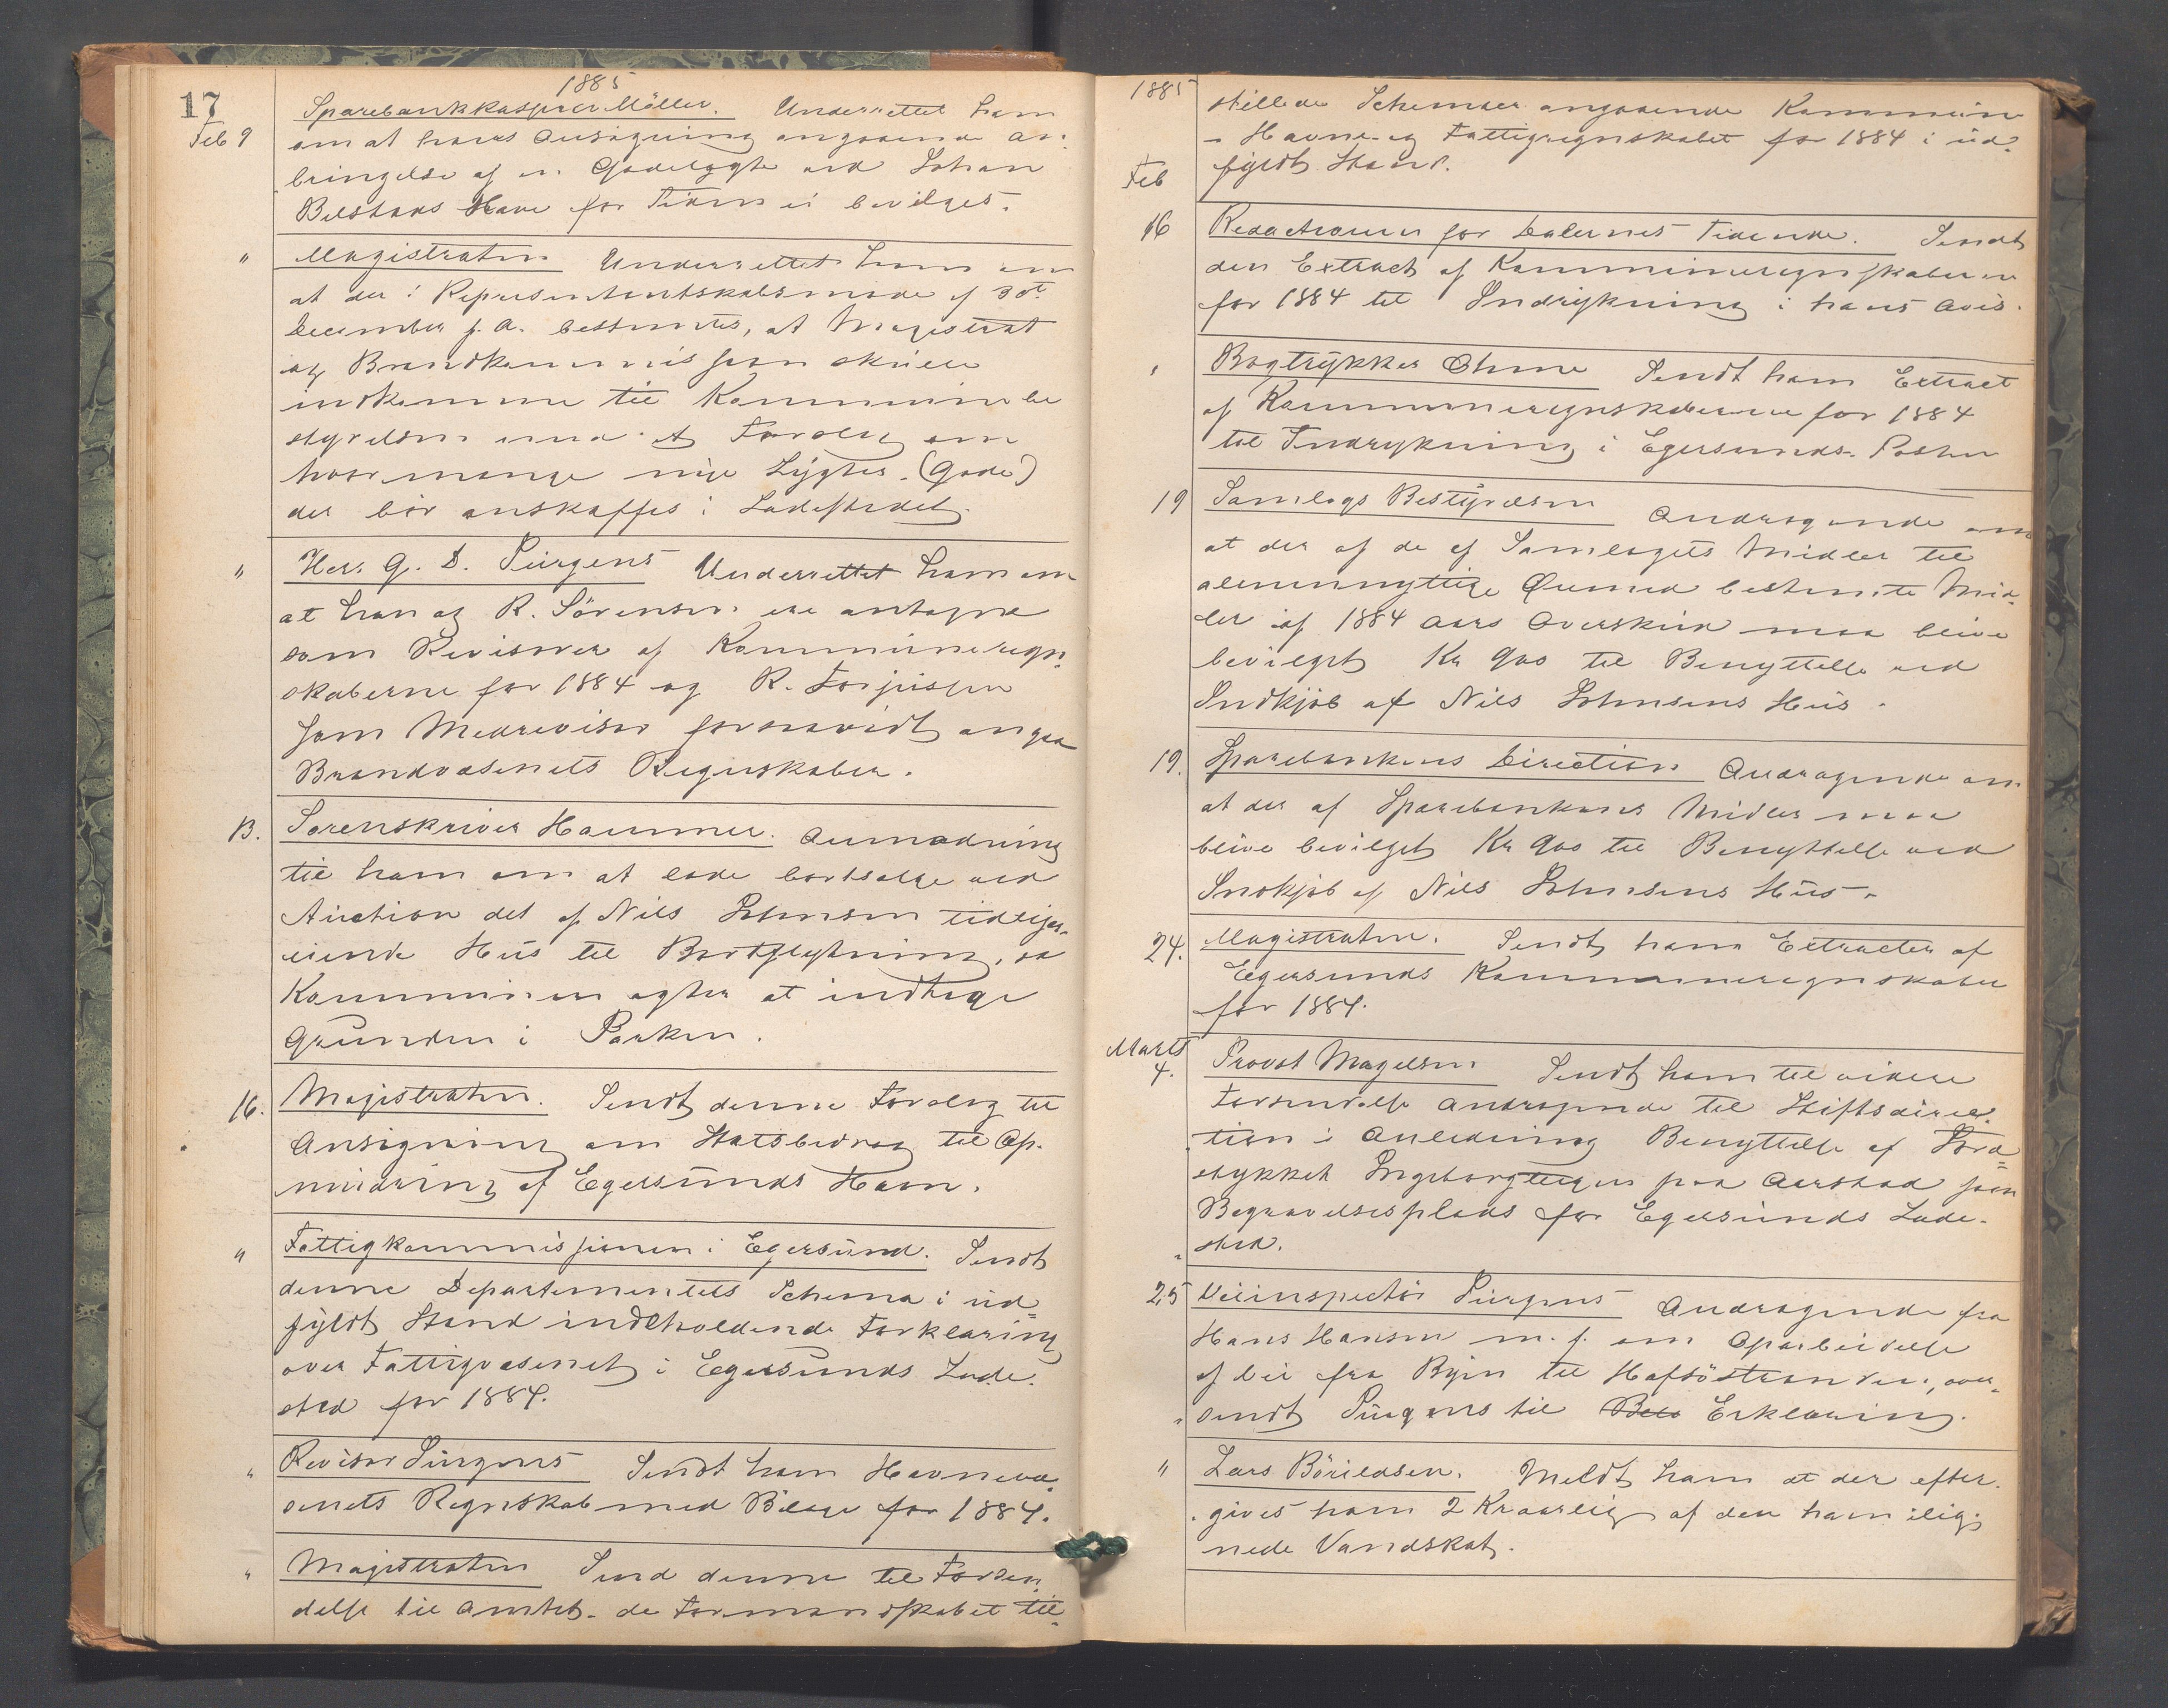 17
1885
Feb 9
Sparebankkasserer Möller. Underrettet ham
om at hans Ansögning angaaende An-
bringelse af en Gadelygte ved Johan
Beistads Have for Tiden ei bevilges.
" Magistraten Underrettet ham om
at der i Representantskabsmöde af 30te
December f. A. bestemtes, at Magistrat
og Brandkommission skulle
indkomme til Kommunebe
styrelsen med et Forslag om
hvor mange nye Lygter (Gade)
der bör anskaffes i Ladestedet.
" Herr G. D. Pürgens Underrettet ham om
at han og R. Sörensen ere antagne
som Revisorer af Kommuneregn-
skaberne for 1884 og R. Torjussen
som Medrevisor forsaavidt angaa
Brandvæsenets Regnskaber.
13. Sorenskriver Hammer. Anmodning
til ham om at lade bortsælge ved
Auction det af Nils Johnsen tidliger
eiende Hus til Bortflytning, da
Kommunen agter at indtage
Grunden i Parken.
16. Magistraten. Sendt denne Forslag til
Ansögning om Statsbidrag til Op-
mudring af Egersunds Havn.
" Fattigkommissionen i Egersund. Sendt
denne Departementets Schema i ud-
fyldt Stand indeholdende Forklaring
over Fattigvæsenet i Egersunds Lade-
sted for 1884.
" Revisor Pürgens Sendt ham Havnevæ-
senets Regnskab med Bilage for 1884.
" Magistraten Send denne til Forsen-
delse til Amtet de Formandskabet til-
1885
stillede Schemaer angaaende Kommune
- Havne- og Fattigregnskabet for 1884 i ud-
fyldt Stand.
Feb
16 Redactionen for Dalernes Tidende. Sendt
den Extract af Kommuneregnskaberne
for 1884 til Indrykning i hans Avis.
" Bogtrykker Ohme Sendt ham Extract
af Kommuneregnskaberne for 1884
til Indrykning i Egersunds-Posten
19 Samlags Bestyrelsen Andragende om
at der af de af Samlagets Midler til
almennyttige Öiemed bestemte Mid-
ler af 1884 Aars Overskud maa blive
bevilget Kr 900 til Benyttelse ved
Indkjöb af Nils Johnsens Hus.
19. Sparebankens Direction Andragende om
at der af Sparebankens Midler maa
blive bevilget Kr 900 til Benyttelse ved
Indkjöb af Nils Johnsens Hus.
24. Magistraten. Sendt ham Extracter af
Egersunds Kommuneregnskaber
for 1884.
Marts
4. Provst Magelsen Sendt ham til videre
Forsendelse Andragende til Stiftsdirec-
tion i Anledning Benyttelse af Jord-
stykket Ingeborgteigen paa Aarstad som
Begravelsesplads for Egersunds Lade-
sted.
25 Veiinspectör Pürgens Andragende fra
Hans Hansen m. f. om Oparbeidelse
af Vei fra Byen til Hafsöstranden, over-
sendt Pürgens til Erklæring.
" Lars Börildsen. Meldt ham at der efter-
gives ham 2 Kr aarlig af den ham ilig-
nede Vandskat.